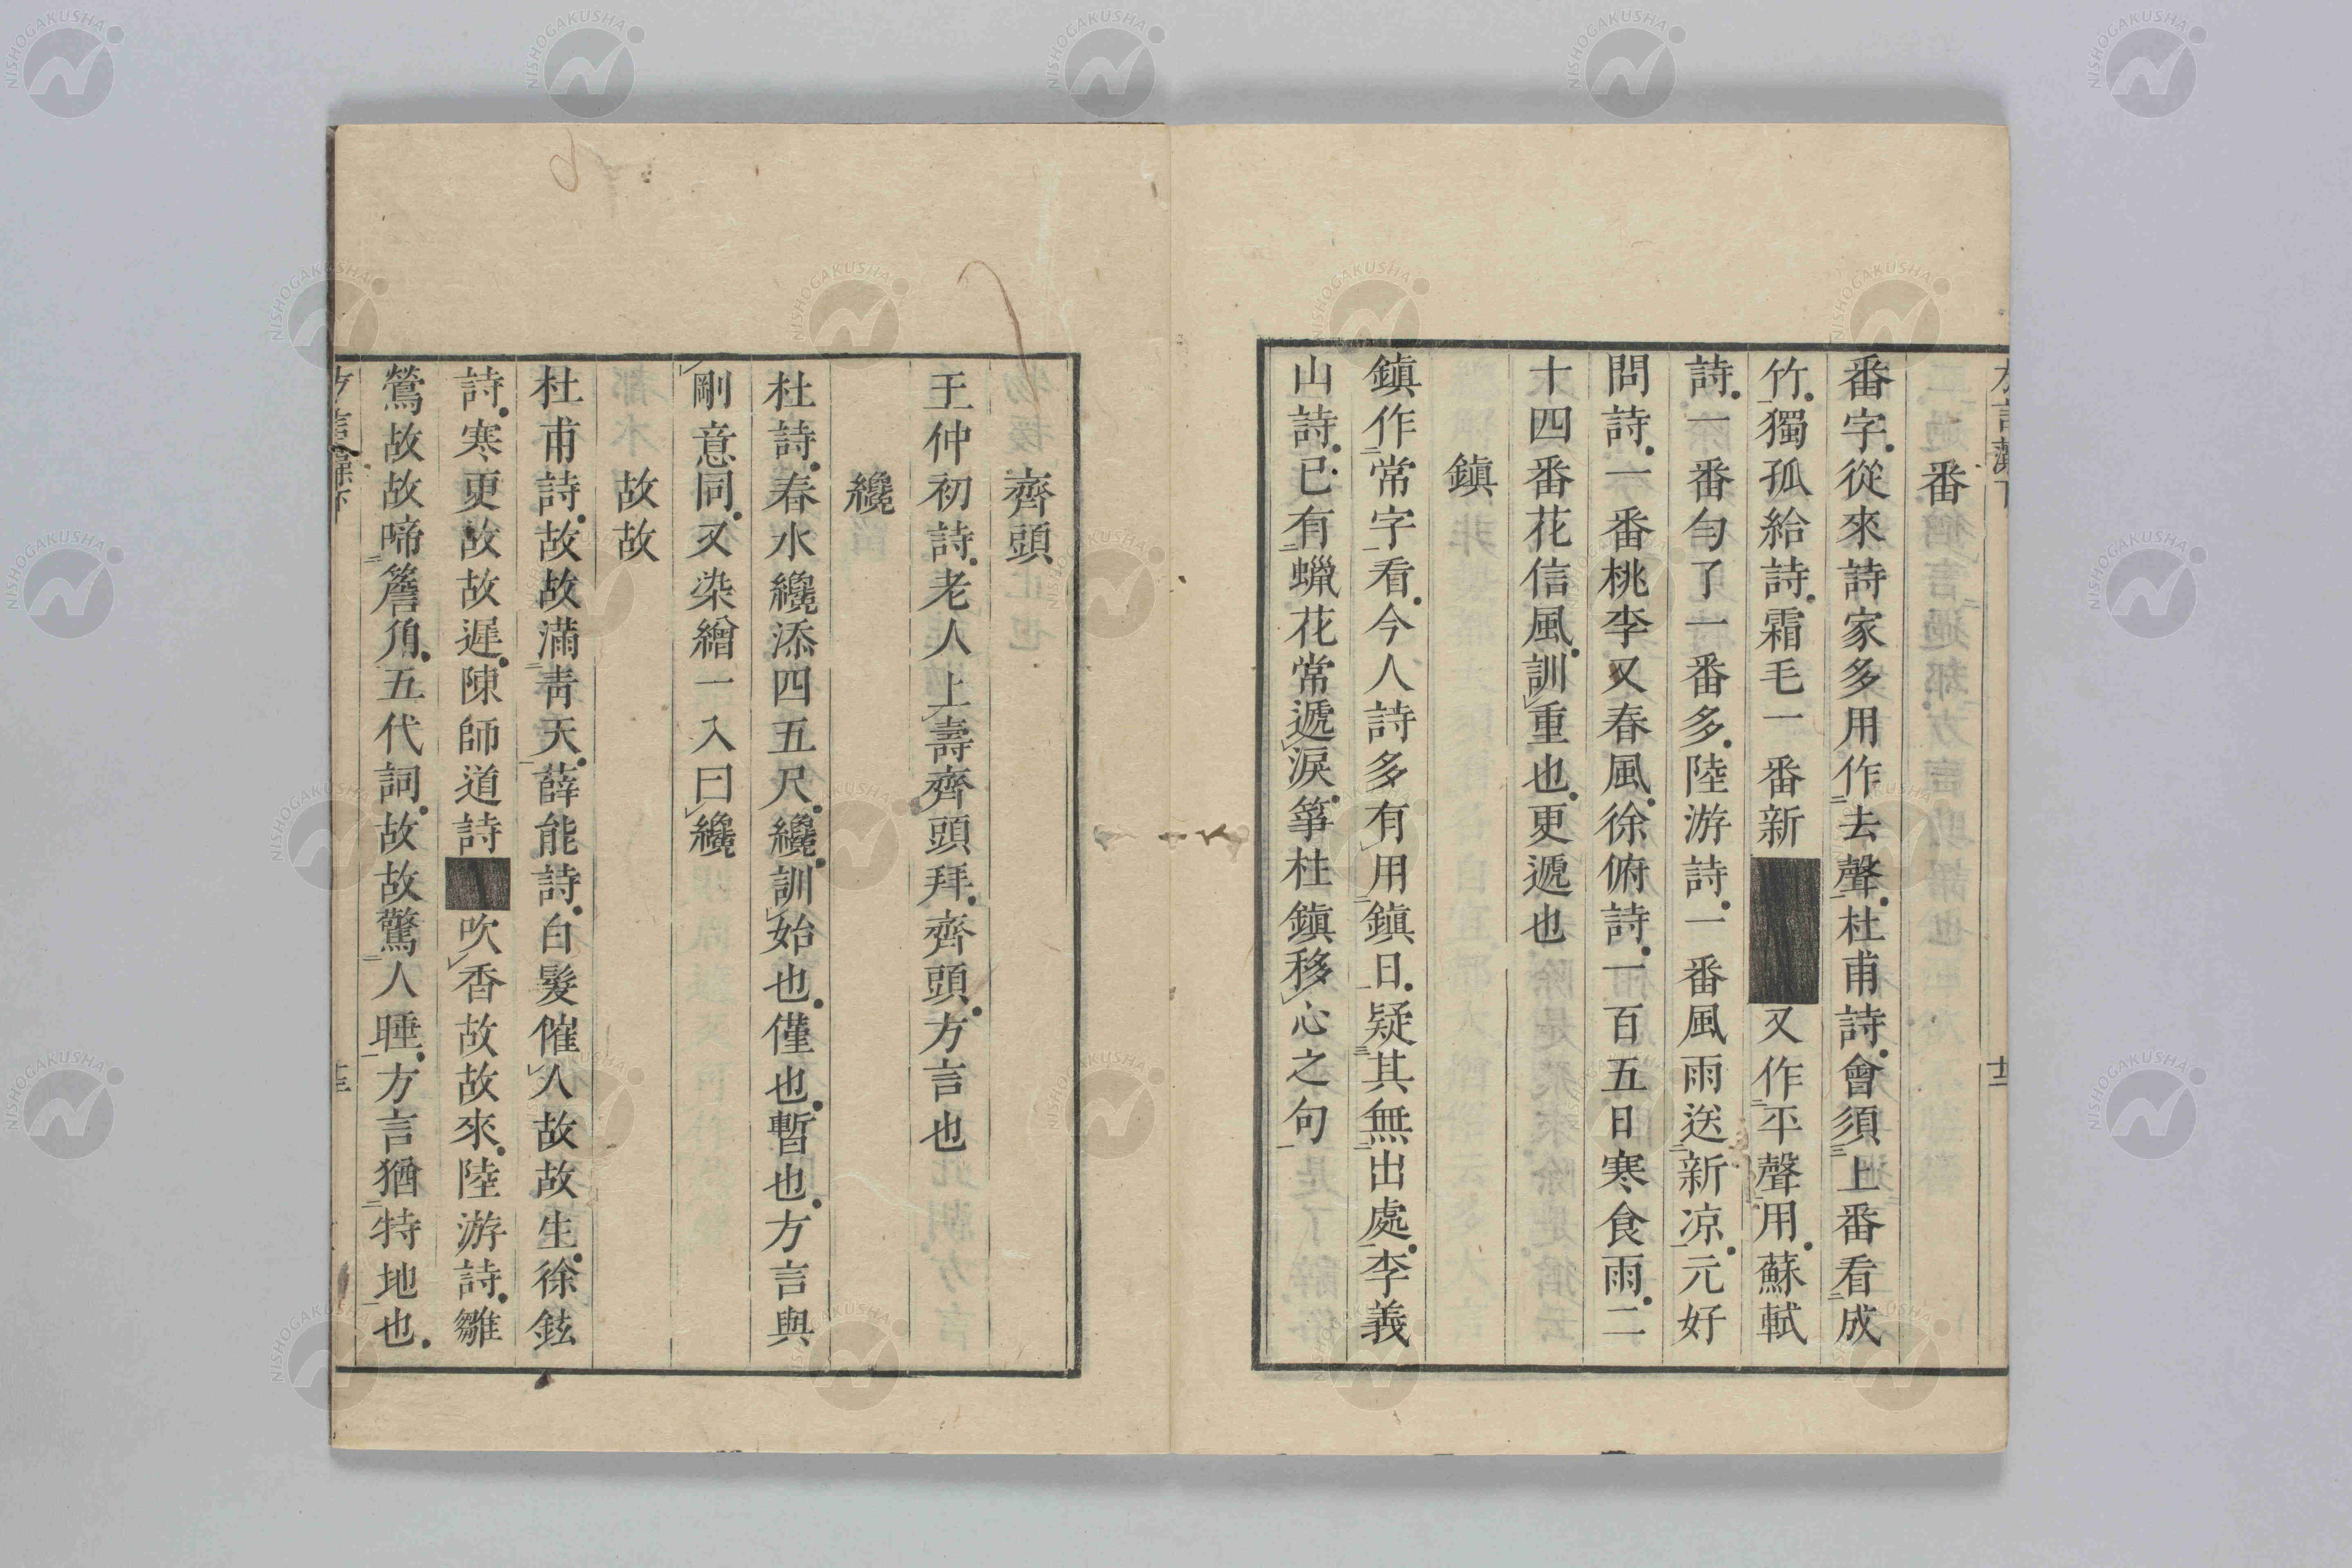 番
番字從來詩家多用作去聲杜甫詩會須上番看成
竹獨孤給詩霜毛一番新■又作平聲用蘇軾
詩一番勻了一番多陸游詩一番風雨送新凉元好
問詩一番桃李又春風徐俯詩一百五日寒食雨二
十四番花信風訓重也更遞也
鎮
鎮作常字看今人詩多有用鎮日疑其無出處李義
山詩已有蠟花常遞淚箏柱鎮移心之句
齊頭
王仲初詩老人上壽齊頭拜齊頭方言也
纔
杜詩春水纔添四五尺纔訓始也僅也暫也方言與
剛意同又染繒一入曰纔
故故
杜甫詩故故滿靑天薛能詩白髮催人故故生徐鉉
詩寒更故故遲陳師道詩■吹香故故來陸游詩雛
鶯故故啼簷角五代詞故故驚人睡方言猶特地也
NISHOGAKUSHA